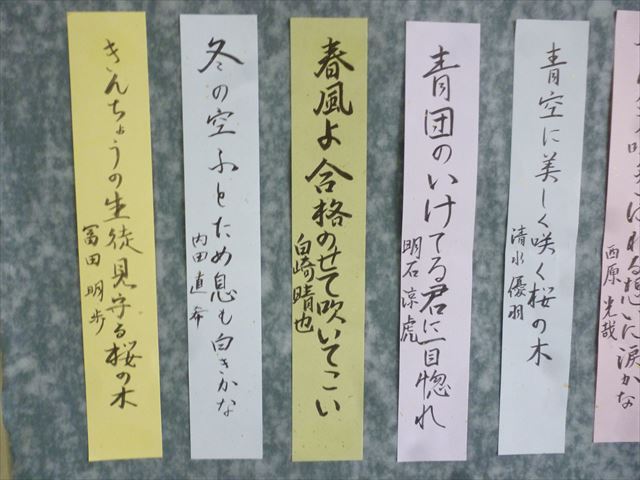 青空に美しく咲く桜の木
清水優羽
青団のいけてる君に一目惚れ
明石涼虎
春風よ合格のせて吹いてこい
白崎晴也
冬の空ふとため息も白きかな
内田直希
きんちょうの生徒見守る桜の木
冨田明歩
西原光哉